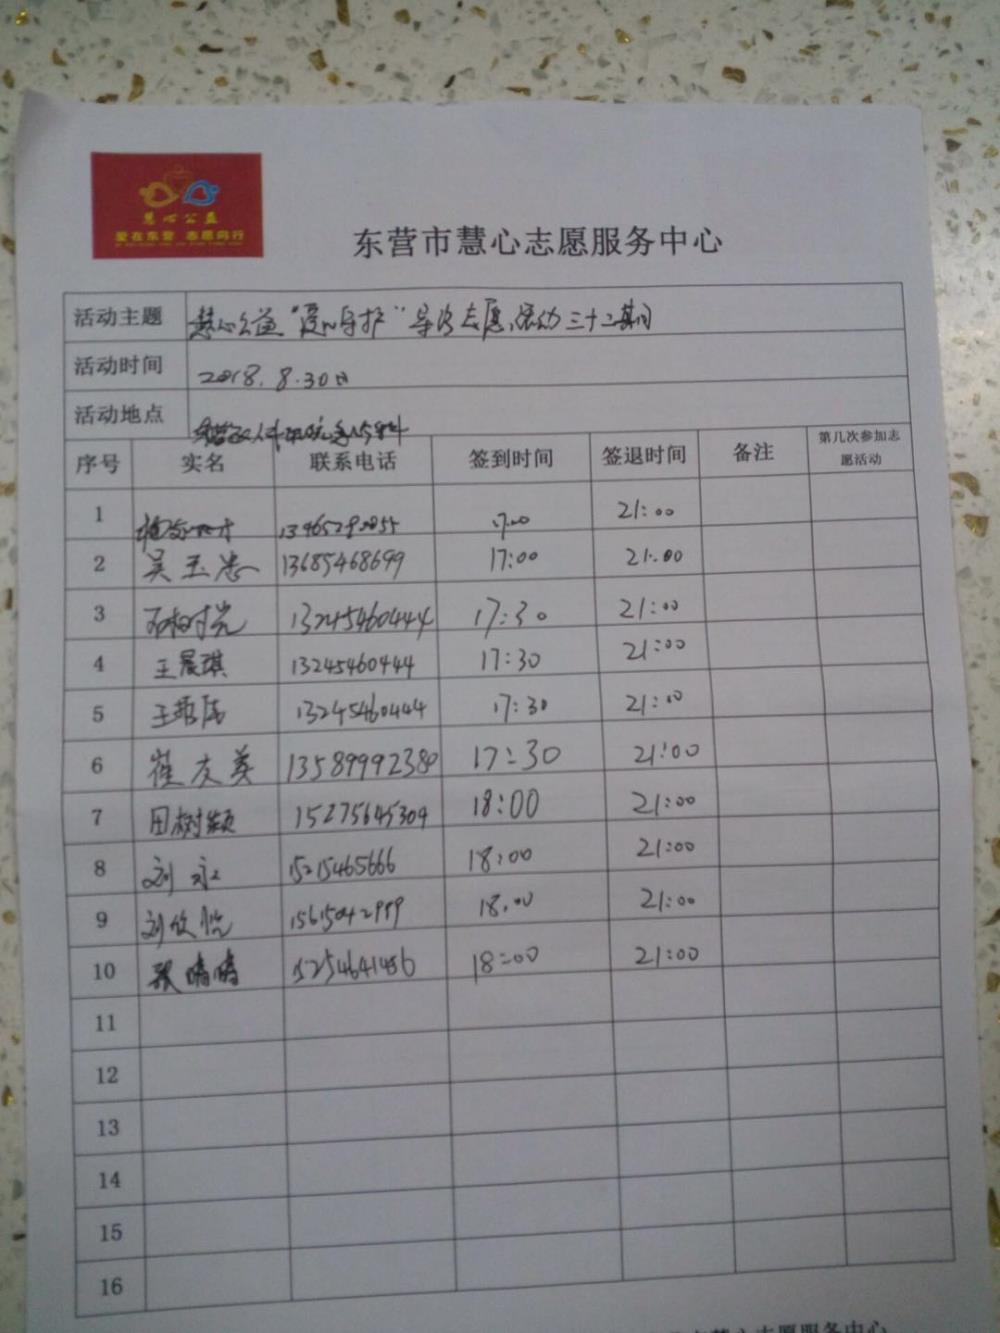 慧心公益
爱在东营 志愿同行
东营市慧心志愿服务中心
活动主题 慧心公益"爱心导护"导诊志愿活动三十二期
活动时间 2018.8.30日
活动地点
序号 实名 联系电话 签到时间 签退时间 备注 第几次参加志愿活动
1 17:00 21:00
2 吴玉忠 13685468699 17:00 21:00
3 13245460444 17:30 21:00
4 王晨琪 13245460444 17:30 21:00
5 13245460444 17:30 21:00
6 崔友英 13589992380 17:30 21:00
7 田树颖 15275645309 18:00 21:00
8 刘永 15215465666 18:00 21:00
9 刘欣悦 18:00 21:00
10 张晴晴 15254641486 18:00 21:00
11
12
13
14
15
16